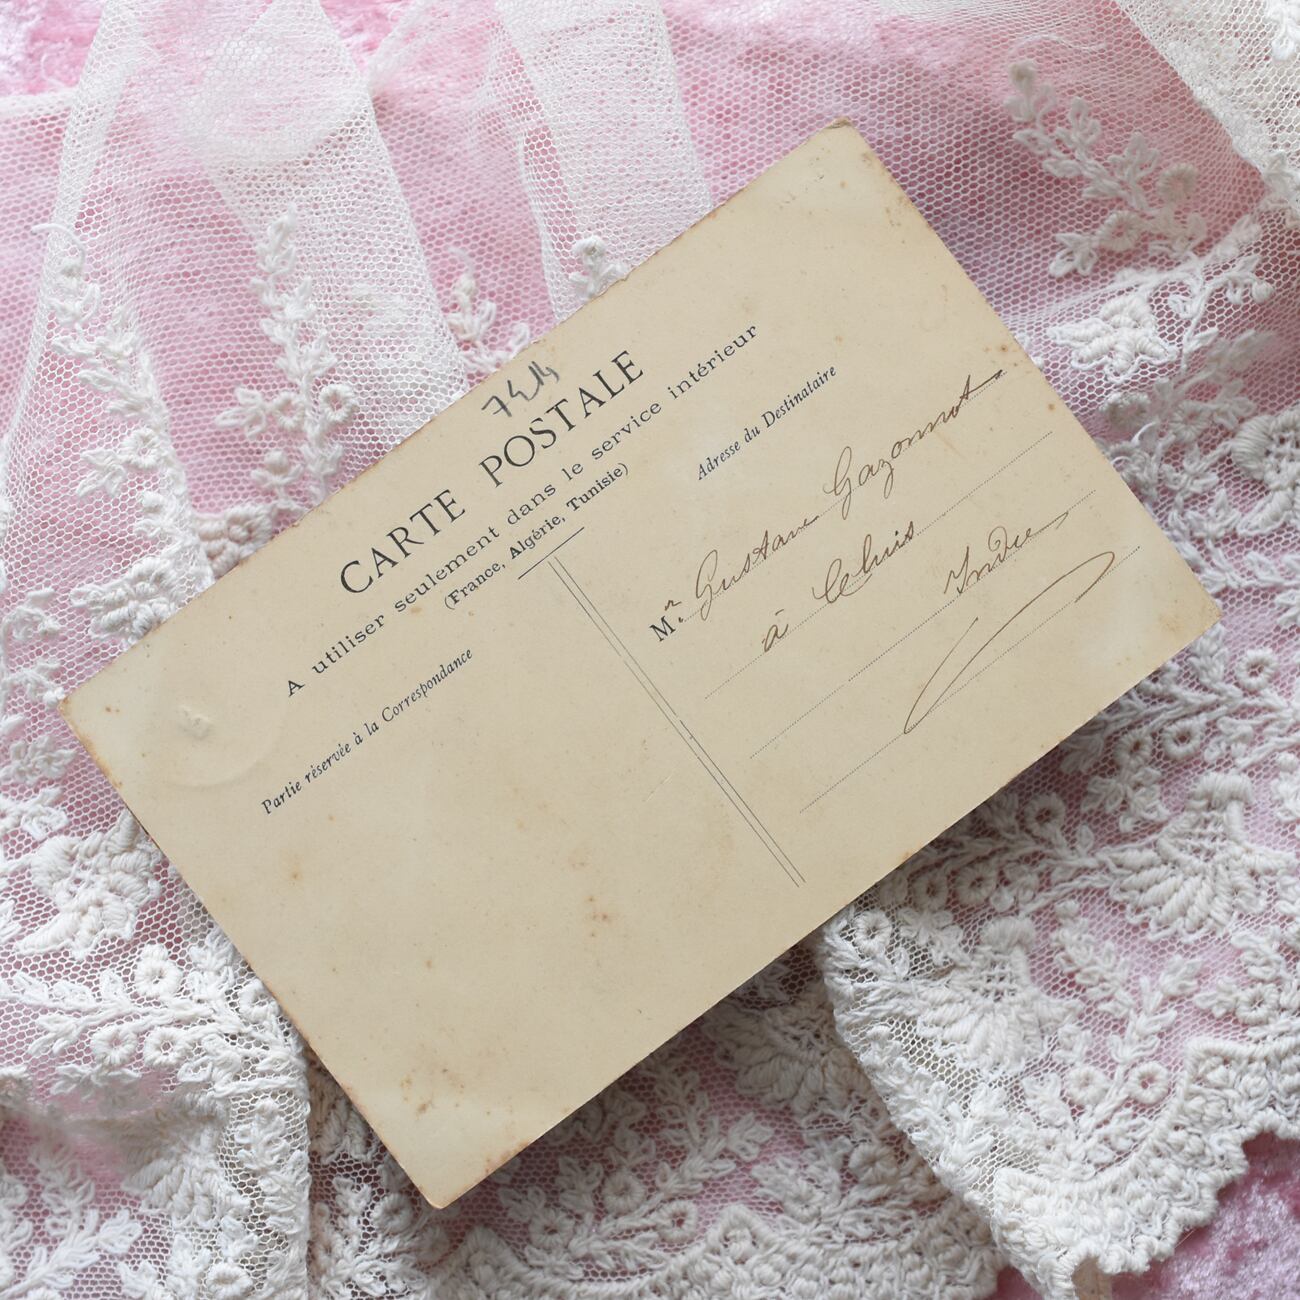 CARTE POSTALE
A utiliser seulement dans le service intérieur
(France, Algérie, Tunisie)
Partie réservée à la Correspondance
Adresse du Destinataire
Mr Gustave Gazonnot
à Cluis
Indre